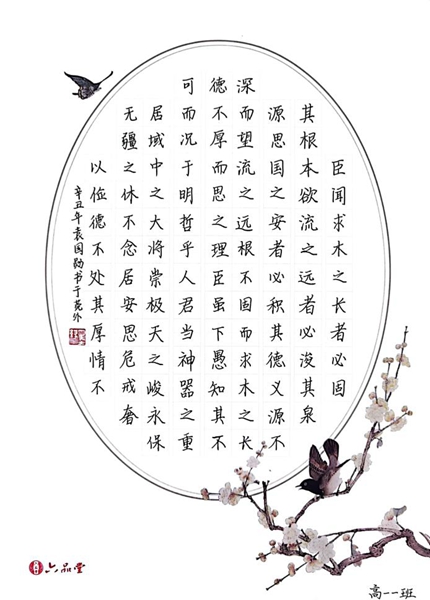 臣闻求木之长者必固
其根本欲流之远者必没其泉
源思国之安者必积其德义源不
深而望流之远根不固而求木之长
德不厚而思之理臣虽下愚知其不
可而况于明哲乎人君当神器之重
居域中之大将崇极天之峻永保
无疆之休不念居安思危戒奢
以俭德不处其厚情不
辛丑年袁国勋书于苑外
六品堂
高一一班